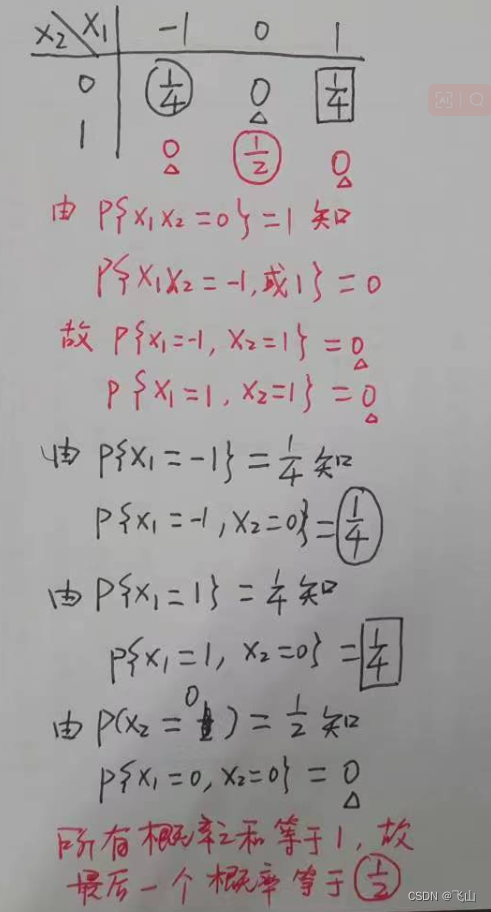 X₂ \ X₁ -1 0 1
0 1/4 0 1/4
1 0 1/2 0
由 P{X₁X₂=0}=1 知
P{X₁X₂=-1,或1}=0
故 P{X₁=-1, X₂=1}=0
P{X₁=1, X₂=1}=0
由 P{X₁=-1}=1/4 知
P{X₁=-1, X₂=0}=1/4
由 P{X₁=1}=1/4 知
P{X₁=1, X₂=0}=1/4
由 P(X₂=0)=1/2 知
P{X₁=0, X₂=0}=0
所有概率之和等于1,故
最后一个概率等于 1/2
CSDN @飞山